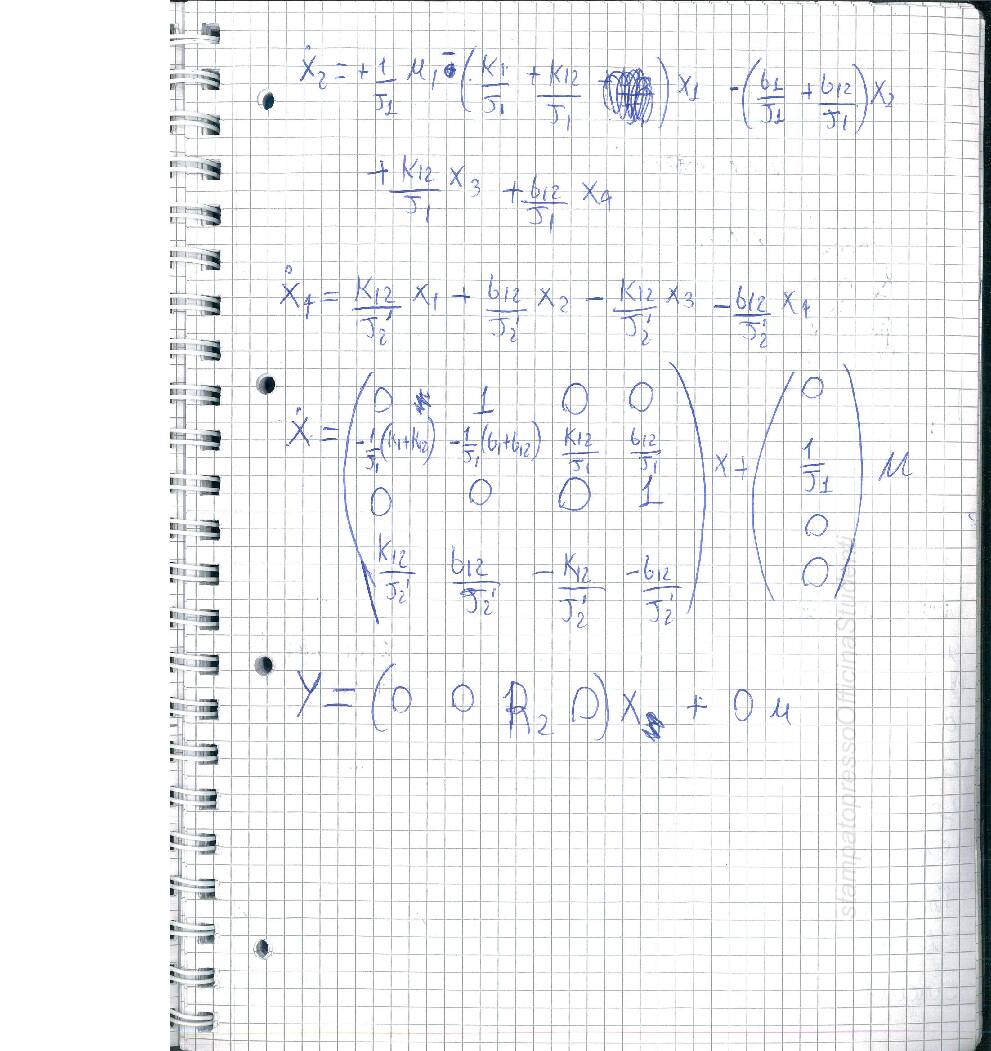 ẋ₂ = + 1/J₁ u₁ - (K₁/J₁ + K₁₂/J₁) x₁ - (b₁/J₁ + b₁₂/J₁) x₂
+ K₁₂/J₁ x₃ + b₁₂/J₁ x₄
ẋ₄ = K₁₂/J₂' x₁ + b₁₂/J₂' x₂ - K₁₂/J₂' x₃ - b₁₂/J₂' x₄
0 1 0 0 0
ẋ = -1/J₁(K₁+K₁₂) -1/J₁(b₁+b₁₂) K₁₂/J₁ b₁₂/J₁ x + 1/J₁ u
0 0 0 1 0
K₁₂/J₂' b₁₂/J₂' -K₁₂/J₂' -b₁₂/J₂' 0
y = (0 0 R₂ 0) x + 0 u
stampatopressoOfficinaStudenti